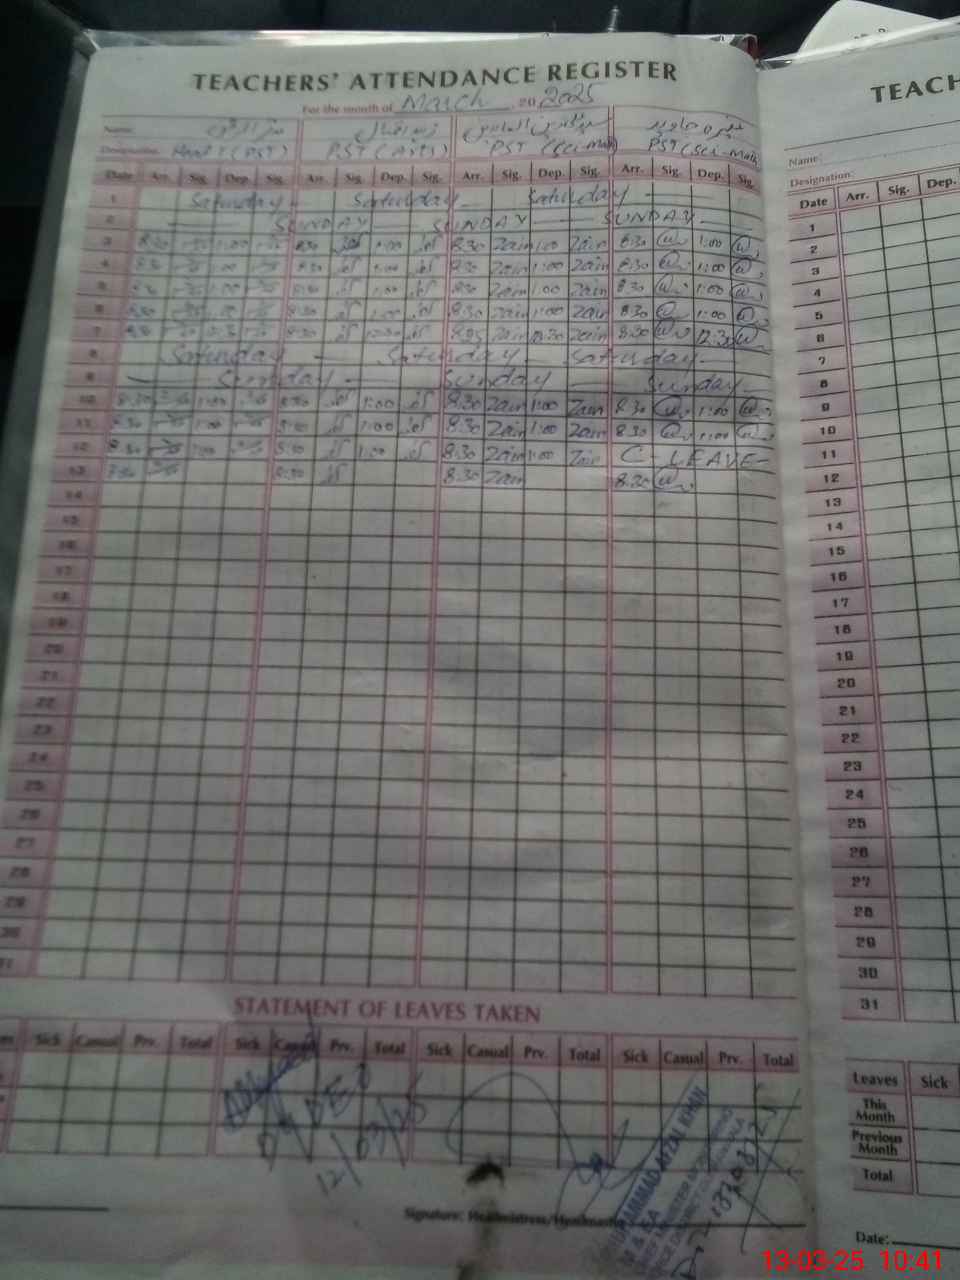 TEACHERS' ATTENDANCE REGISTER
For the month of March 2025
Name:
زبیر اقبال
منیزہ جاوید
Designation: Head T (PST) PST (Arts) PST (Sci-Math) PST (Sci-Math)
Date Arr. Sig. Dep. Sig. Arr. Sig. Dep. Sig. Arr. Sig. Dep. Sig. Arr. Sig. Dep. Sig.
1 Saturday Saturday Saturday
2 SUNDAY SUNDAY SUNDAY
3 8:30 1:00 8:30 1:00 8:30 Zain 1:00 Zain 8:30 1:00
4 8:30 1:00 8:30 1:00 8:30 Zain 1:00 Zain 8:30 1:00
5 8:30 1:00 8:30 1:00 8:30 Zain 1:00 Zain 8:30 1:00
6 8:30 1:00 8:30 1:00 8:30 Zain 1:00 Zain 8:30 1:00
7 8:30 12:30 8:30 12:30 Zain 12:30 Zain 8:30 12:30
8 Saturday Saturday Saturday
9 Sunday Sunday Sunday
10 8:30 1:00 8:30 1:00 8:30 Zain 1:00 Zain 8:30 1:00
11 8:30 1:00 8:30 1:00 8:30 Zain 1:00 Zain 8:30 1:00
12 8:30 1:00 8:30 1:00 8:30 Zain 1:00 Zain C-LEAVE-
13 8:30 8:30 8:30 Zain 8:30
14
15
16
17
18
19
20
21
22
23
24
25
26
27
28
29
30
31
STATEMENT OF LEAVES TAKEN
Sick Casual Prv. Total Sick Casual Prv. Total Sick Casual Prv. Total Sick Casual Prv. Total
12/03/25
MUHAMMAD AFZAL KHAN
Signature: Headmistress/Headmaster
TEACH
Name:
Designation:
Date Arr. Sig. Dep.
1
2
3
4
5
6
7
8
9
10
11
12
13
14
15
16
17
18
19
20
21
22
23
24
25
26
27
28
29
30
31
Leaves Sick
This Month
Previous Month
Total
Date:
13-03-25 10:41